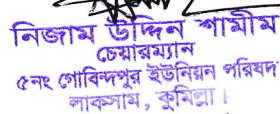 নিজাম উদ্দিন শামীম
চেয়ারম্যান
৫নং গোবিন্দপুর ইউনিয়ন পরিষদ
লাকসাম, কুমিল্লা।